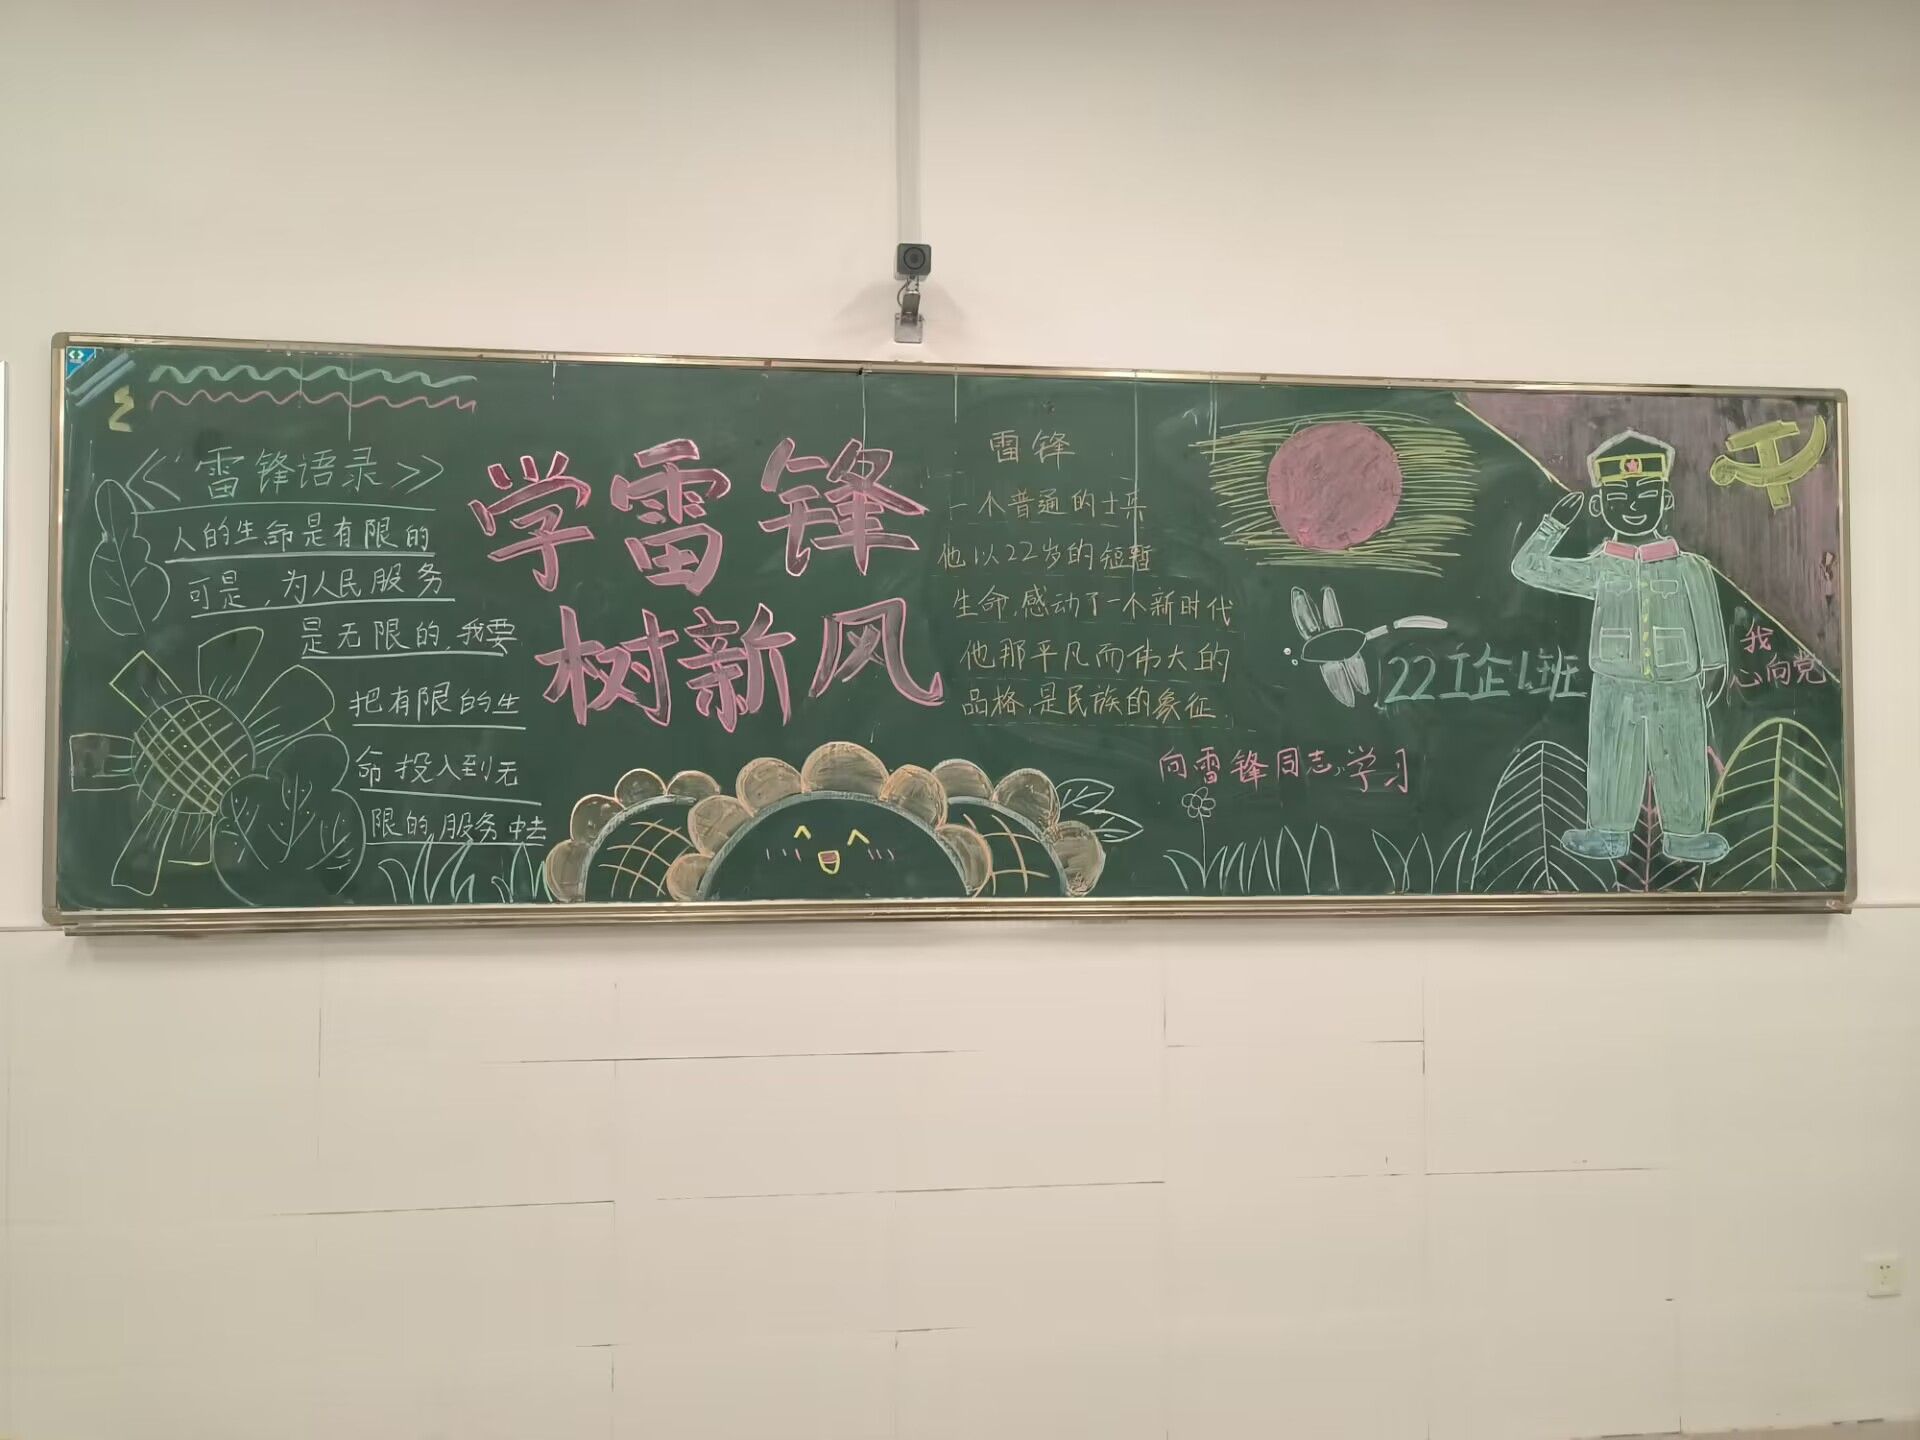 《雷锋语录》
人的生命是有限的
可是,为人民服务
是无限的,我要
把有限的生
命投入到无
限的,服务中去
学雷锋
树新风
雷锋
一个普通的士兵
他以22岁的短暂
生命,感动了一个新时代
他那平凡而伟大的
品格,是民族的象征.
向雷锋同志,学习
22工企1班
我
心向党